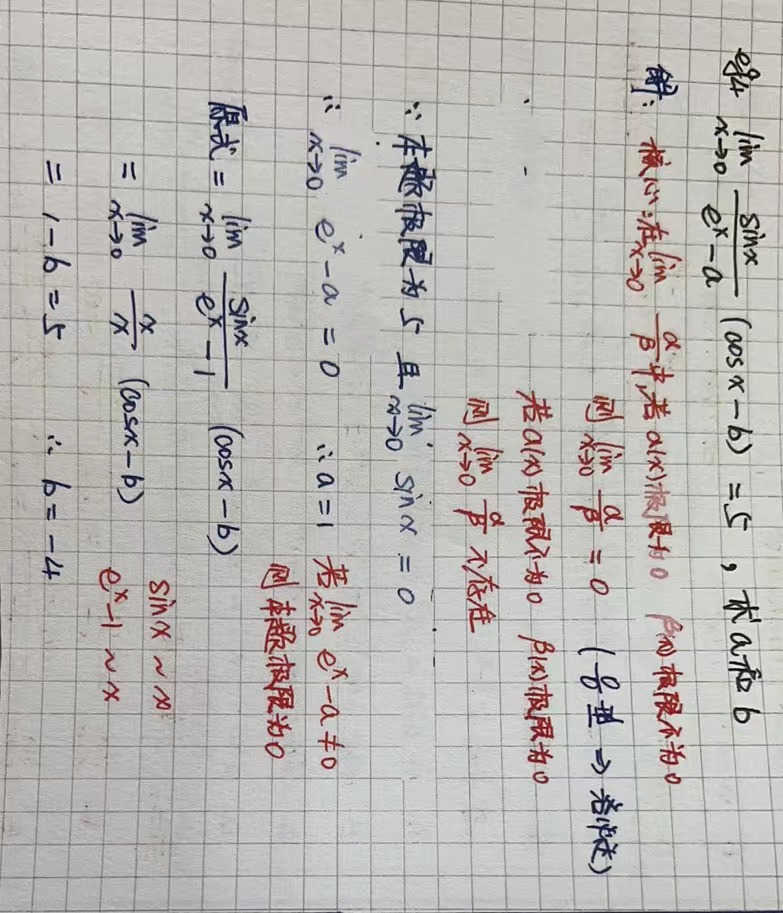 eg4 lim x→0 sinx/(e^x-a) (cosx-b) =5，求a和b
解：核心：在lim x→0 α/β中，若α(x)极限为0 β(x)极限不为0
则 lim x→0 α/β = 0 (0/0型 ⇒ 洛必达)
若α(x)极限不为0 β(x)极限为0
则 lim x→0 α/β 不存在
∵本题极限为5 且 lim x→0 sinx = 0
∴ lim x→0 e^x-a = 0 ∴a=1 若lim x→0 e^x-a≠0
则本题极限为0
原式= lim x→0 sinx/(e^x-1) (cosx-b)
= lim x→0 x/x (cosx-b) sinx ~ x
e^x-1 ~ x
= 1-b=5 ∴ b=-4